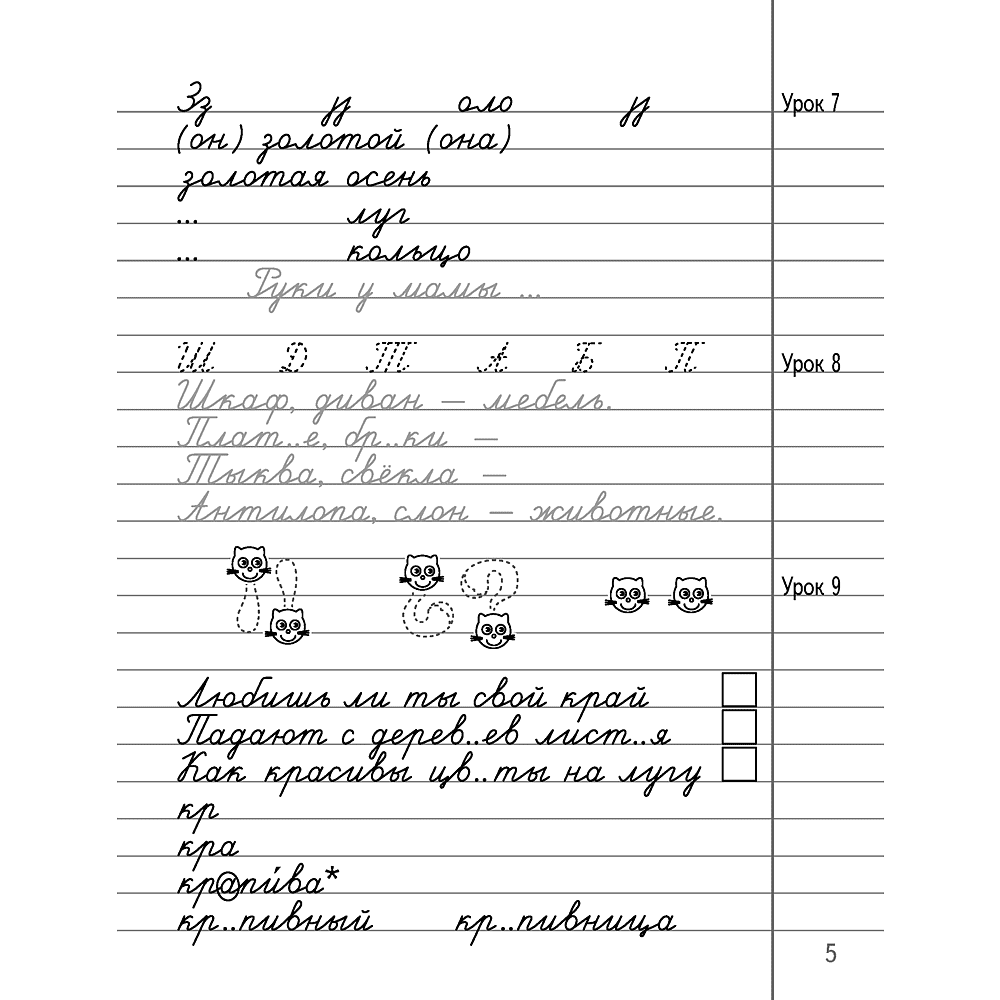 Зз уу оло уу Урок 7
(он) золотой (она)
золотая осень
... луг
... кольцо
Руки у мамы ...
Ш Д Т А Б П Урок 8
Шкаф, диван — мебель.
Плат..е, бр..ки —
Тыква, свёкла —
Антилопа, слон — животные.
Урок 9
Любишь ли ты свой край
Падают с дерев..ев лист..я
Как красивы цв..ты на лугу
кр
кра
крапи́ва*
кр..пивный кр..пивница
5